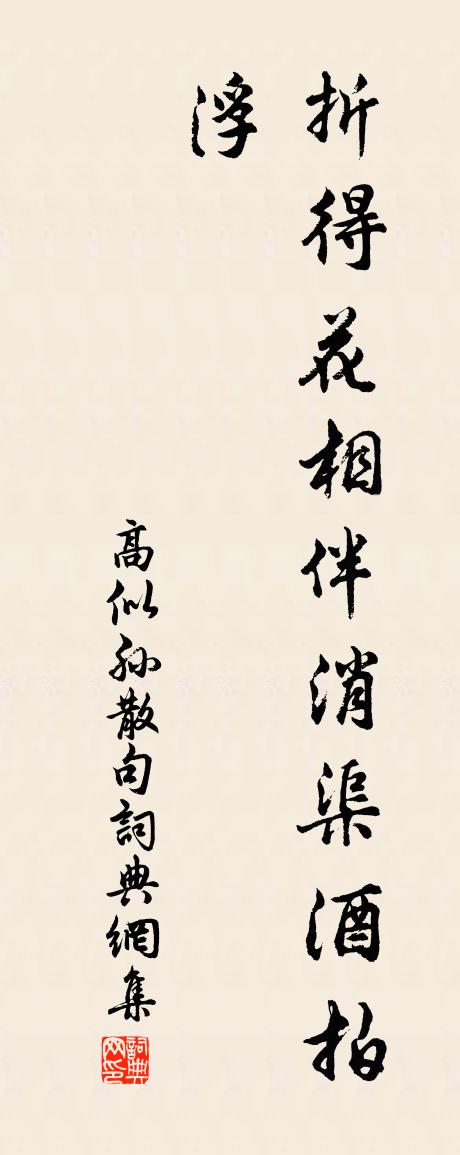 折得花相伴消渠酒拍
浮
高似孙散句詞典網集
詞典网印